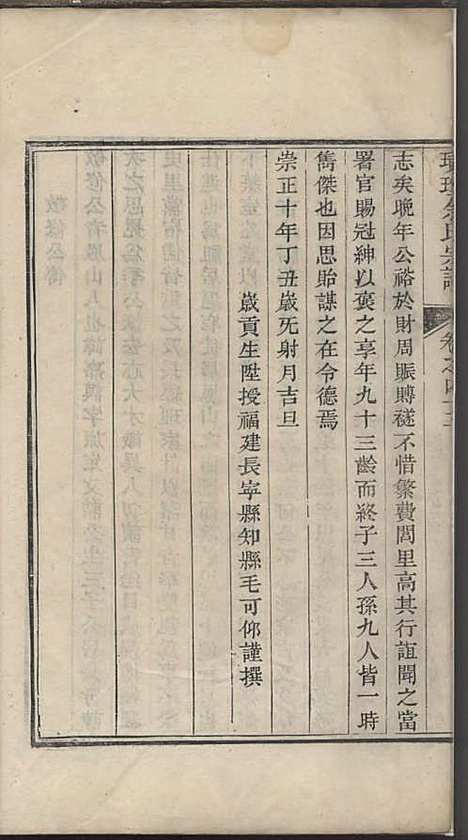 志矣晚年公裕於財周賑賻襚不惜繁費閭里高其行誼聞之當
署官賜冠紳以褒之享年九十三齡而終子三人孫九人皆一時
雋傑也因思貽謀之在令德焉
崇正十年丁丑嵗旡射月吉旦
嵗貢生陞授福建長寧縣知縣毛可仰謹撰